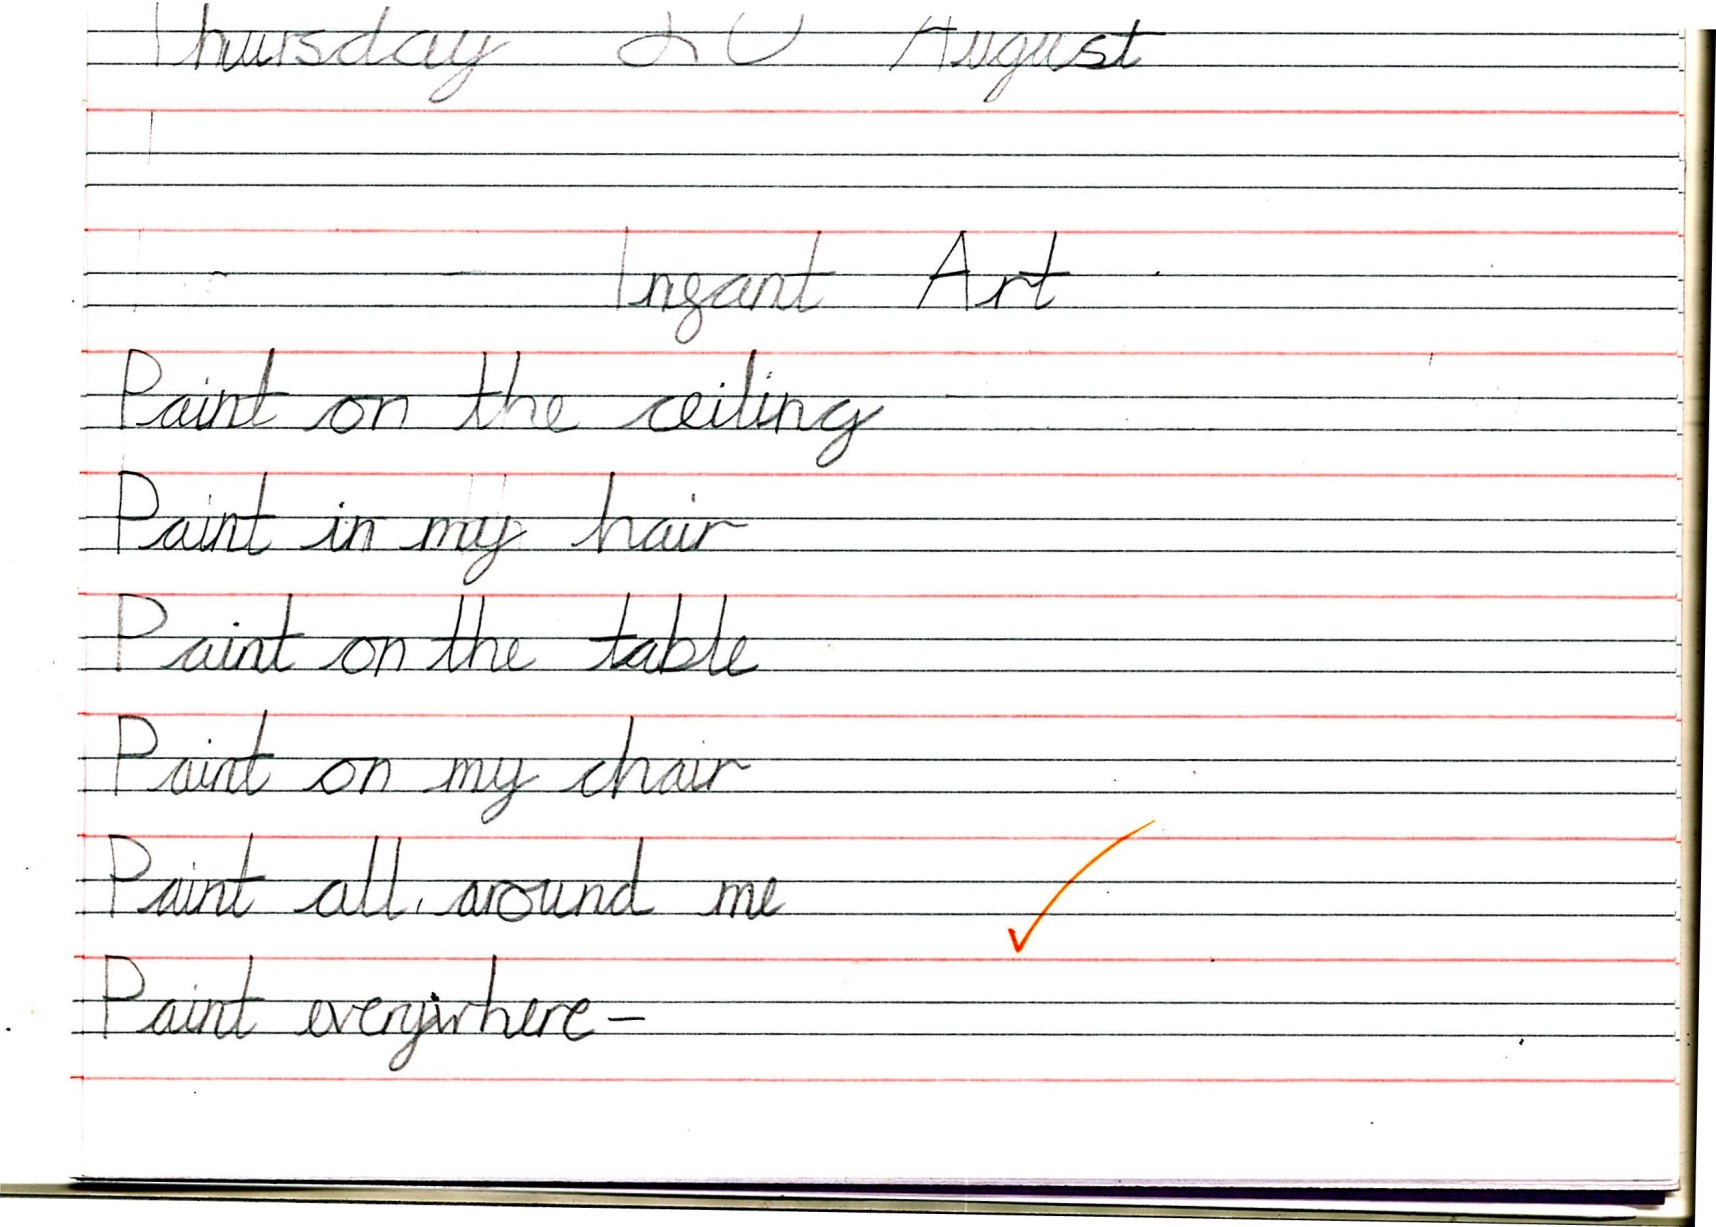 Thursday 20 August
Ingant Art
Paint on the ceiling
Paint in my hair
Paint on the table
Paint on my chair
Paint all around me
Paint everywhere—